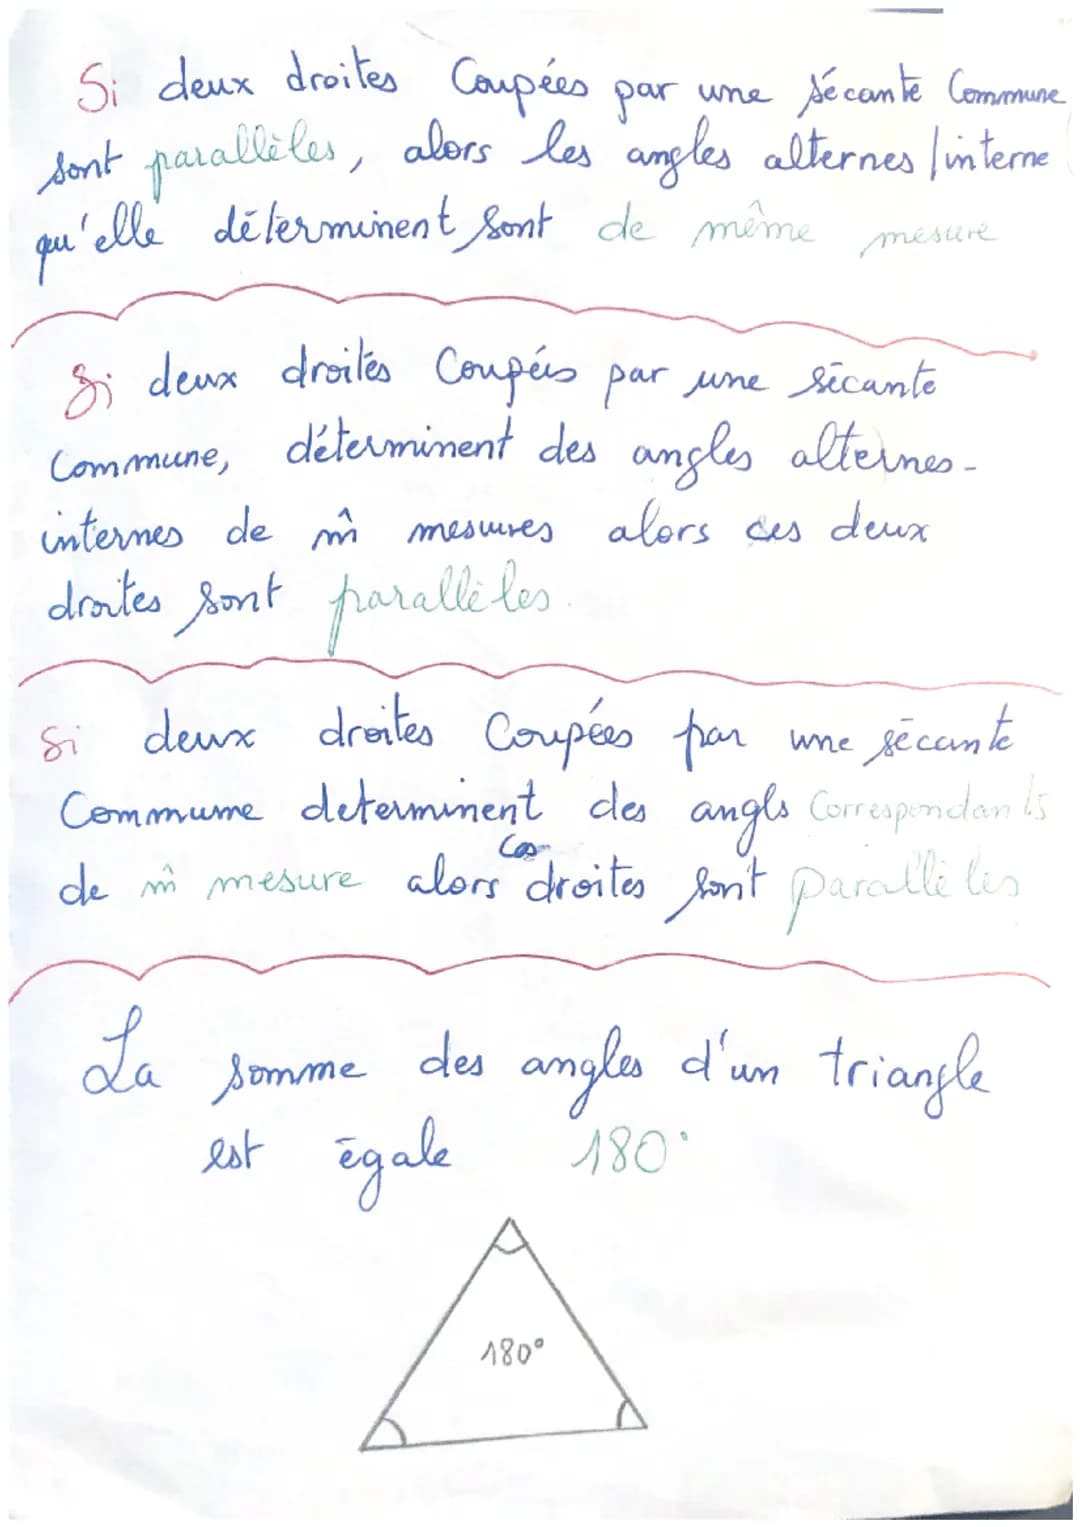 Si deux droites Coupées par une sécante Commune
sont parallèles, alors les angles alternes/interne
qu'elle déterminent sont de même mesure
Si deux droites Coupées par une sécante
Commune, déterminent des angles alternes-
internes de m̂ mesures alors ces deux
droites sont parallèles.
Si deux droites Coupées par une sécante
Commume determinent des angls Correspondants
de m̂ mesure alors ces droites sont Parallèles
La somme des angles d'un triangle
est égale 180°
180°